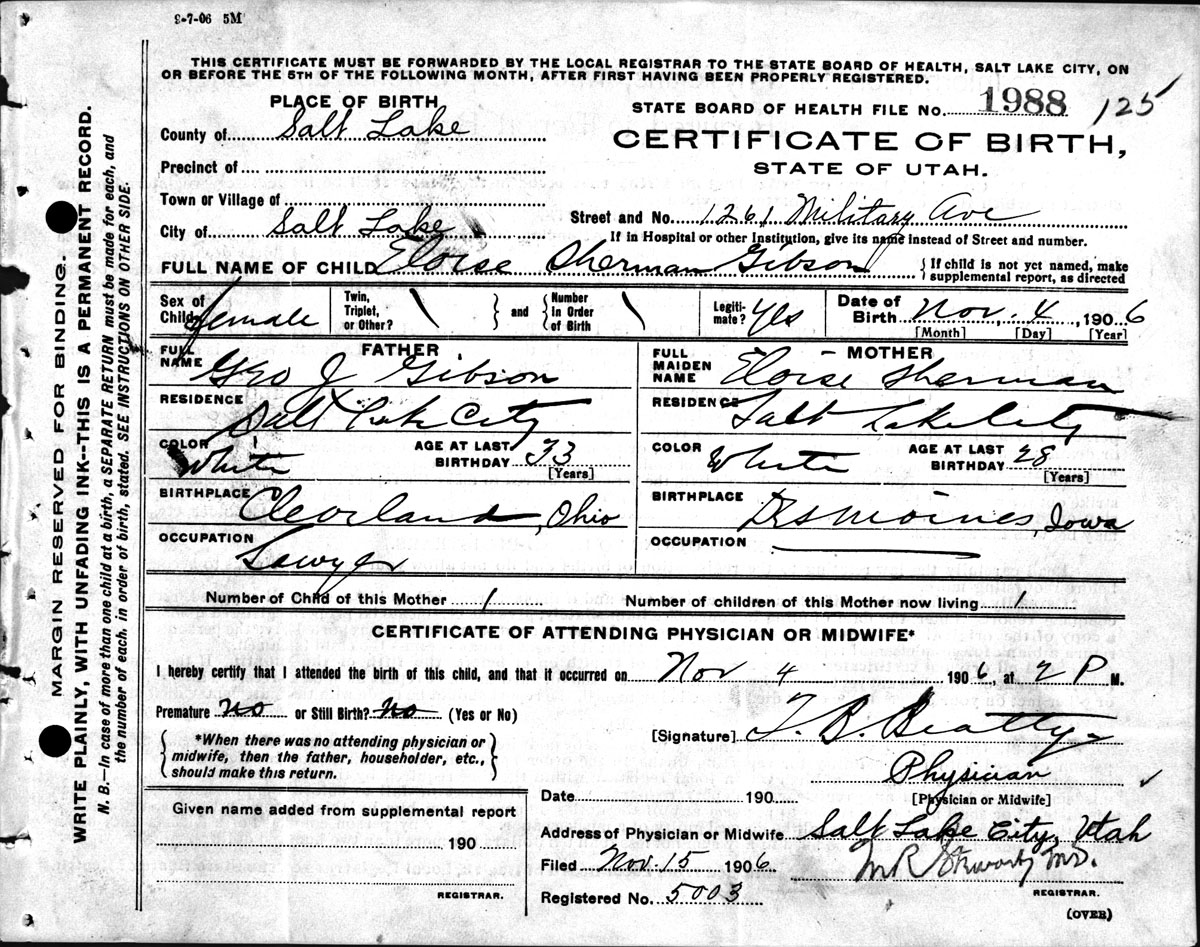 9-7-06 5M
THIS CERTIFICATE MUST BE FORWARDED BY THE LOCAL REGISTRAR TO THE STATE BOARD OF HEALTH, SALT LAKE CITY, ON
OR BEFORE THE 5TH OF THE FOLLOWING MONTH, AFTER FIRST HAVING BEEN PROPERLY REGISTERED.
PLACE OF BIRTH
County of Salt Lake
Precinct of
Town or Village of
City of Salt Lake
STATE BOARD OF HEALTH FILE No. 1988 125
CERTIFICATE OF BIRTH,
STATE OF UTAH.
Street and No. 1261 Military Ave
If in Hospital or other Institution, give its name instead of Street and number.
FULL NAME OF CHILD Eloise Sherman Gibson {If child is not yet named, make
supplemental report, as directed
Sex of Child female
Twin, Triplet, or Other? \ } and { Number In Order of Birth \
Legitimate? Yes
Date of Birth Nov. 4, 1906
[Month] [Day] [Year]
FATHER
FULL NAME Geo J Gibson
RESIDENCE Salt Lake City
COLOR White AGE AT LAST BIRTHDAY 33
[Years]
BIRTHPLACE Cleveland, Ohio
OCCUPATION Lawyer
MOTHER
FULL MAIDEN NAME Eloise Sherman
RESIDENCE Salt Lake City
COLOR White AGE AT LAST BIRTHDAY 28
[Years]
BIRTHPLACE Desmoines, Iowa
OCCUPATION
Number of Child of this Mother 1 Number of children of this Mother now living 1
CERTIFICATE OF ATTENDING PHYSICIAN OR MIDWIFE*
I hereby certify that I attended the birth of this child, and that it occurred on Nov 4 1906, at 2 P M.
Premature no or Still Birth? no (Yes or No)
*When there was no attending physician or
midwife, then the father, householder, etc.,
should make this return.
[Signature] T. B. Beatty
Physician
[Physician or Midwife]
Date 190
Address of Physician or Midwife Salt Lake City, Utah
Filed Nov. 15 1906 M R Stewart, MD.
REGISTRAR.
Registered No. 5003
(OVER)
Given name added from supplemental report
190
REGISTRAR.
MARGIN RESERVED FOR BINDING.
WRITE PLAINLY, WITH UNFADING INK--THIS IS A PERMANENT RECORD.
N. B.—In case of more than one child at a birth, a SEPARATE RETURN must be made for each, and
the number of each, in order of birth, stated. SEE INSTRUCTIONS ON OTHER SIDE.